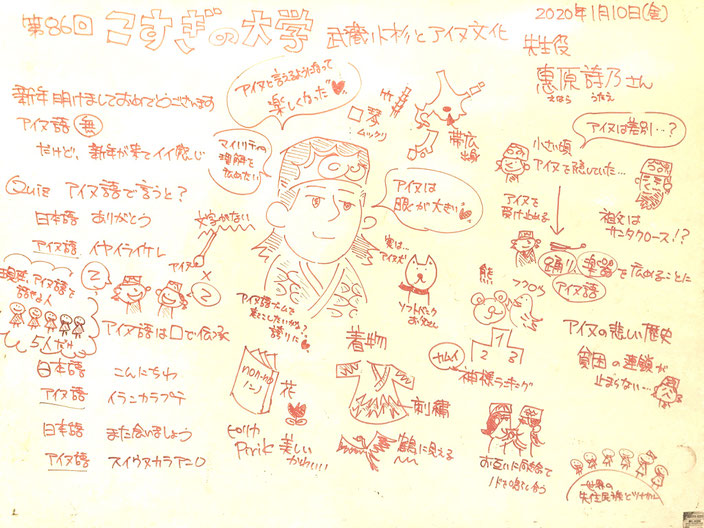 第86回 こすぎの大学 武蔵小杉とアイヌ文化
2020年1月10日(金)
先生役
恵原詩乃さん
えばら うたえ
新年明けましておめでとうございます
アイヌ語 無
だけど、新年が来てイイ感じ
Quiz アイヌ語で言うと?
日本語 ありがとう
アイヌ語 イヤイライケレ
現在、アイヌ語を
話せる人
5人だけ
アイヌ語は口で伝承
日本語 こんにちわ
アイヌ語 イランカラプテ
日本語 また会いましょう
アイヌ語 スイウヌカラアンロ
アイヌと言えるようになって
楽しくなった
マイノリティの
理解を
広めたい
文字がない
アイヌ
×
2
2
竹製
口琴
ムックリ
帯広
出身
アイヌは
眼が大きい
実は…
アイヌ犬
ソフトバンク
お父さん
誇りに
non-no
花
ピリカ
Pirik
美しい
かわいい
着物
刺繍
鶴に見える
熊
フクロウ
1
2
3
カムイ
神様ランキング
お互いに
アイヌは差別…?
小さい頃
アイヌを隠していた…
アイヌを
受け止める
祖父は
サンタクロース!?
踊り、楽器で広めることに
アイヌ語
アイヌの悲しい歴史
貧困の連鎖が
止まらない…
世界の
先住民族とつながる